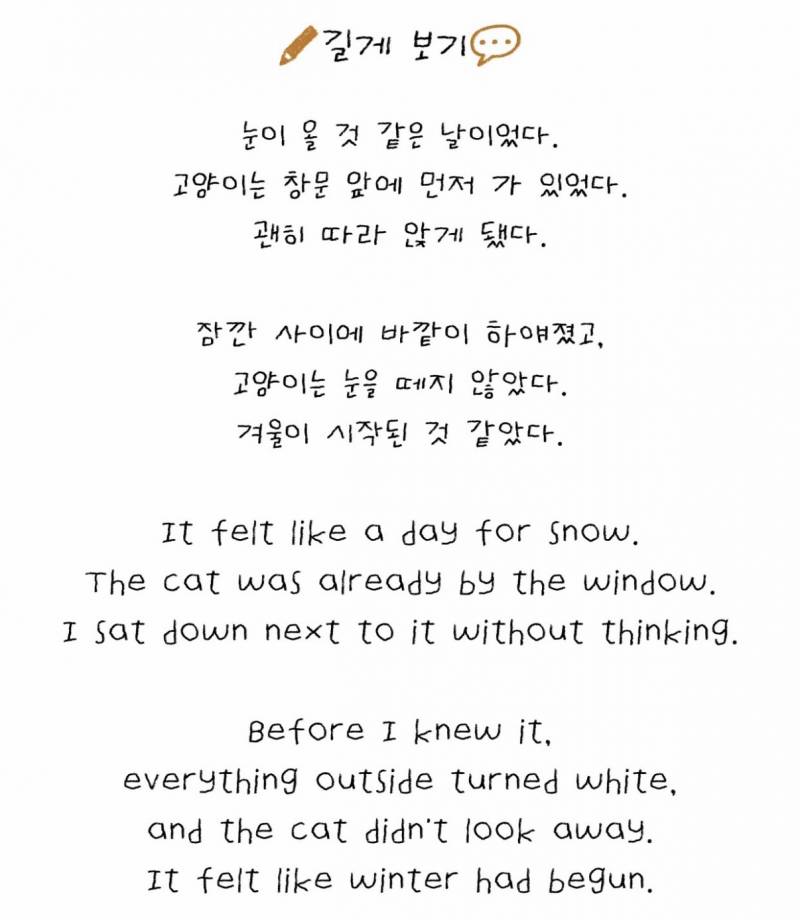 길게 보기
눈이 올 것 같은 날이었다.
고양이는 창문 앞에 먼저 가 있었다.
괜히 따라 앉게 됐다.
잠깐 사이에 바깥이 하얘졌고,
고양이는 눈을 떼지 않았다.
겨울이 시작된 것 같았다.
It felt like a day for snow.
The cat was already by the window.
I sat down next to it without thinking.
Before I knew it,
everything outside turned white,
and the cat didn't look away.
It felt like winter had begun.